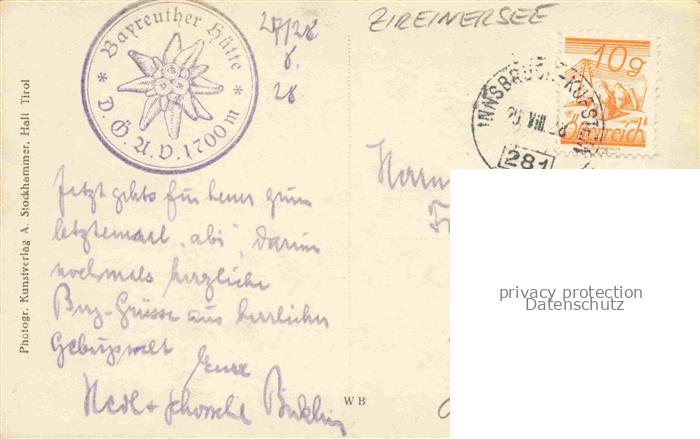 Bayreuther Hütte
* D.Ö.A.V. 1700m *
27/28
8.
28
ZIREINERSEE
INNSBRUCK-KUFSTEIN
29 VIII 28
281
10g
Österreich
Photogr. Kunstverlag A. Stockhammer, Hall Tirol
Jetzt gehts für heuer zum
letztenmal „abi", darum
nochmals herzliche
Berg-Grüsse aus herrlicher
Gebirgswelt
Eure
Herrn
WB
privacy protection
Datenschutz